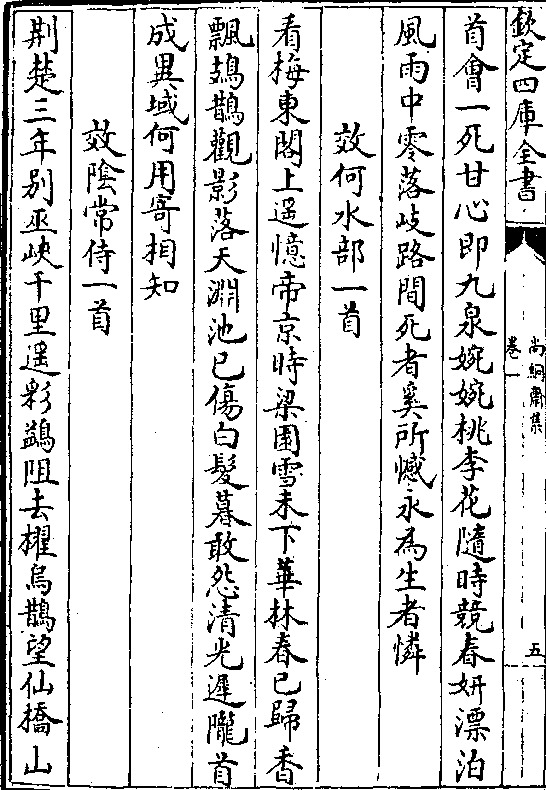 欽定四庫全書
尚絅齋集
卷一
五
首會一死甘心即九泉婉婉桃李花隨時競春妍漂泊
風雨中零落歧路間死者奚所憾永為生者憐
效何水部一首
看梅東閣上遥憶帝京時梁園雪未下華林春已歸香
飄鳷鵲觀影落天淵池已傷白髮暮敢怨清光遲隴首
成異域何用寄相知
效陰常侍一首
荆楚三年别巫峽千里遥彩鷁阻去櫂烏鵲望仙橋山